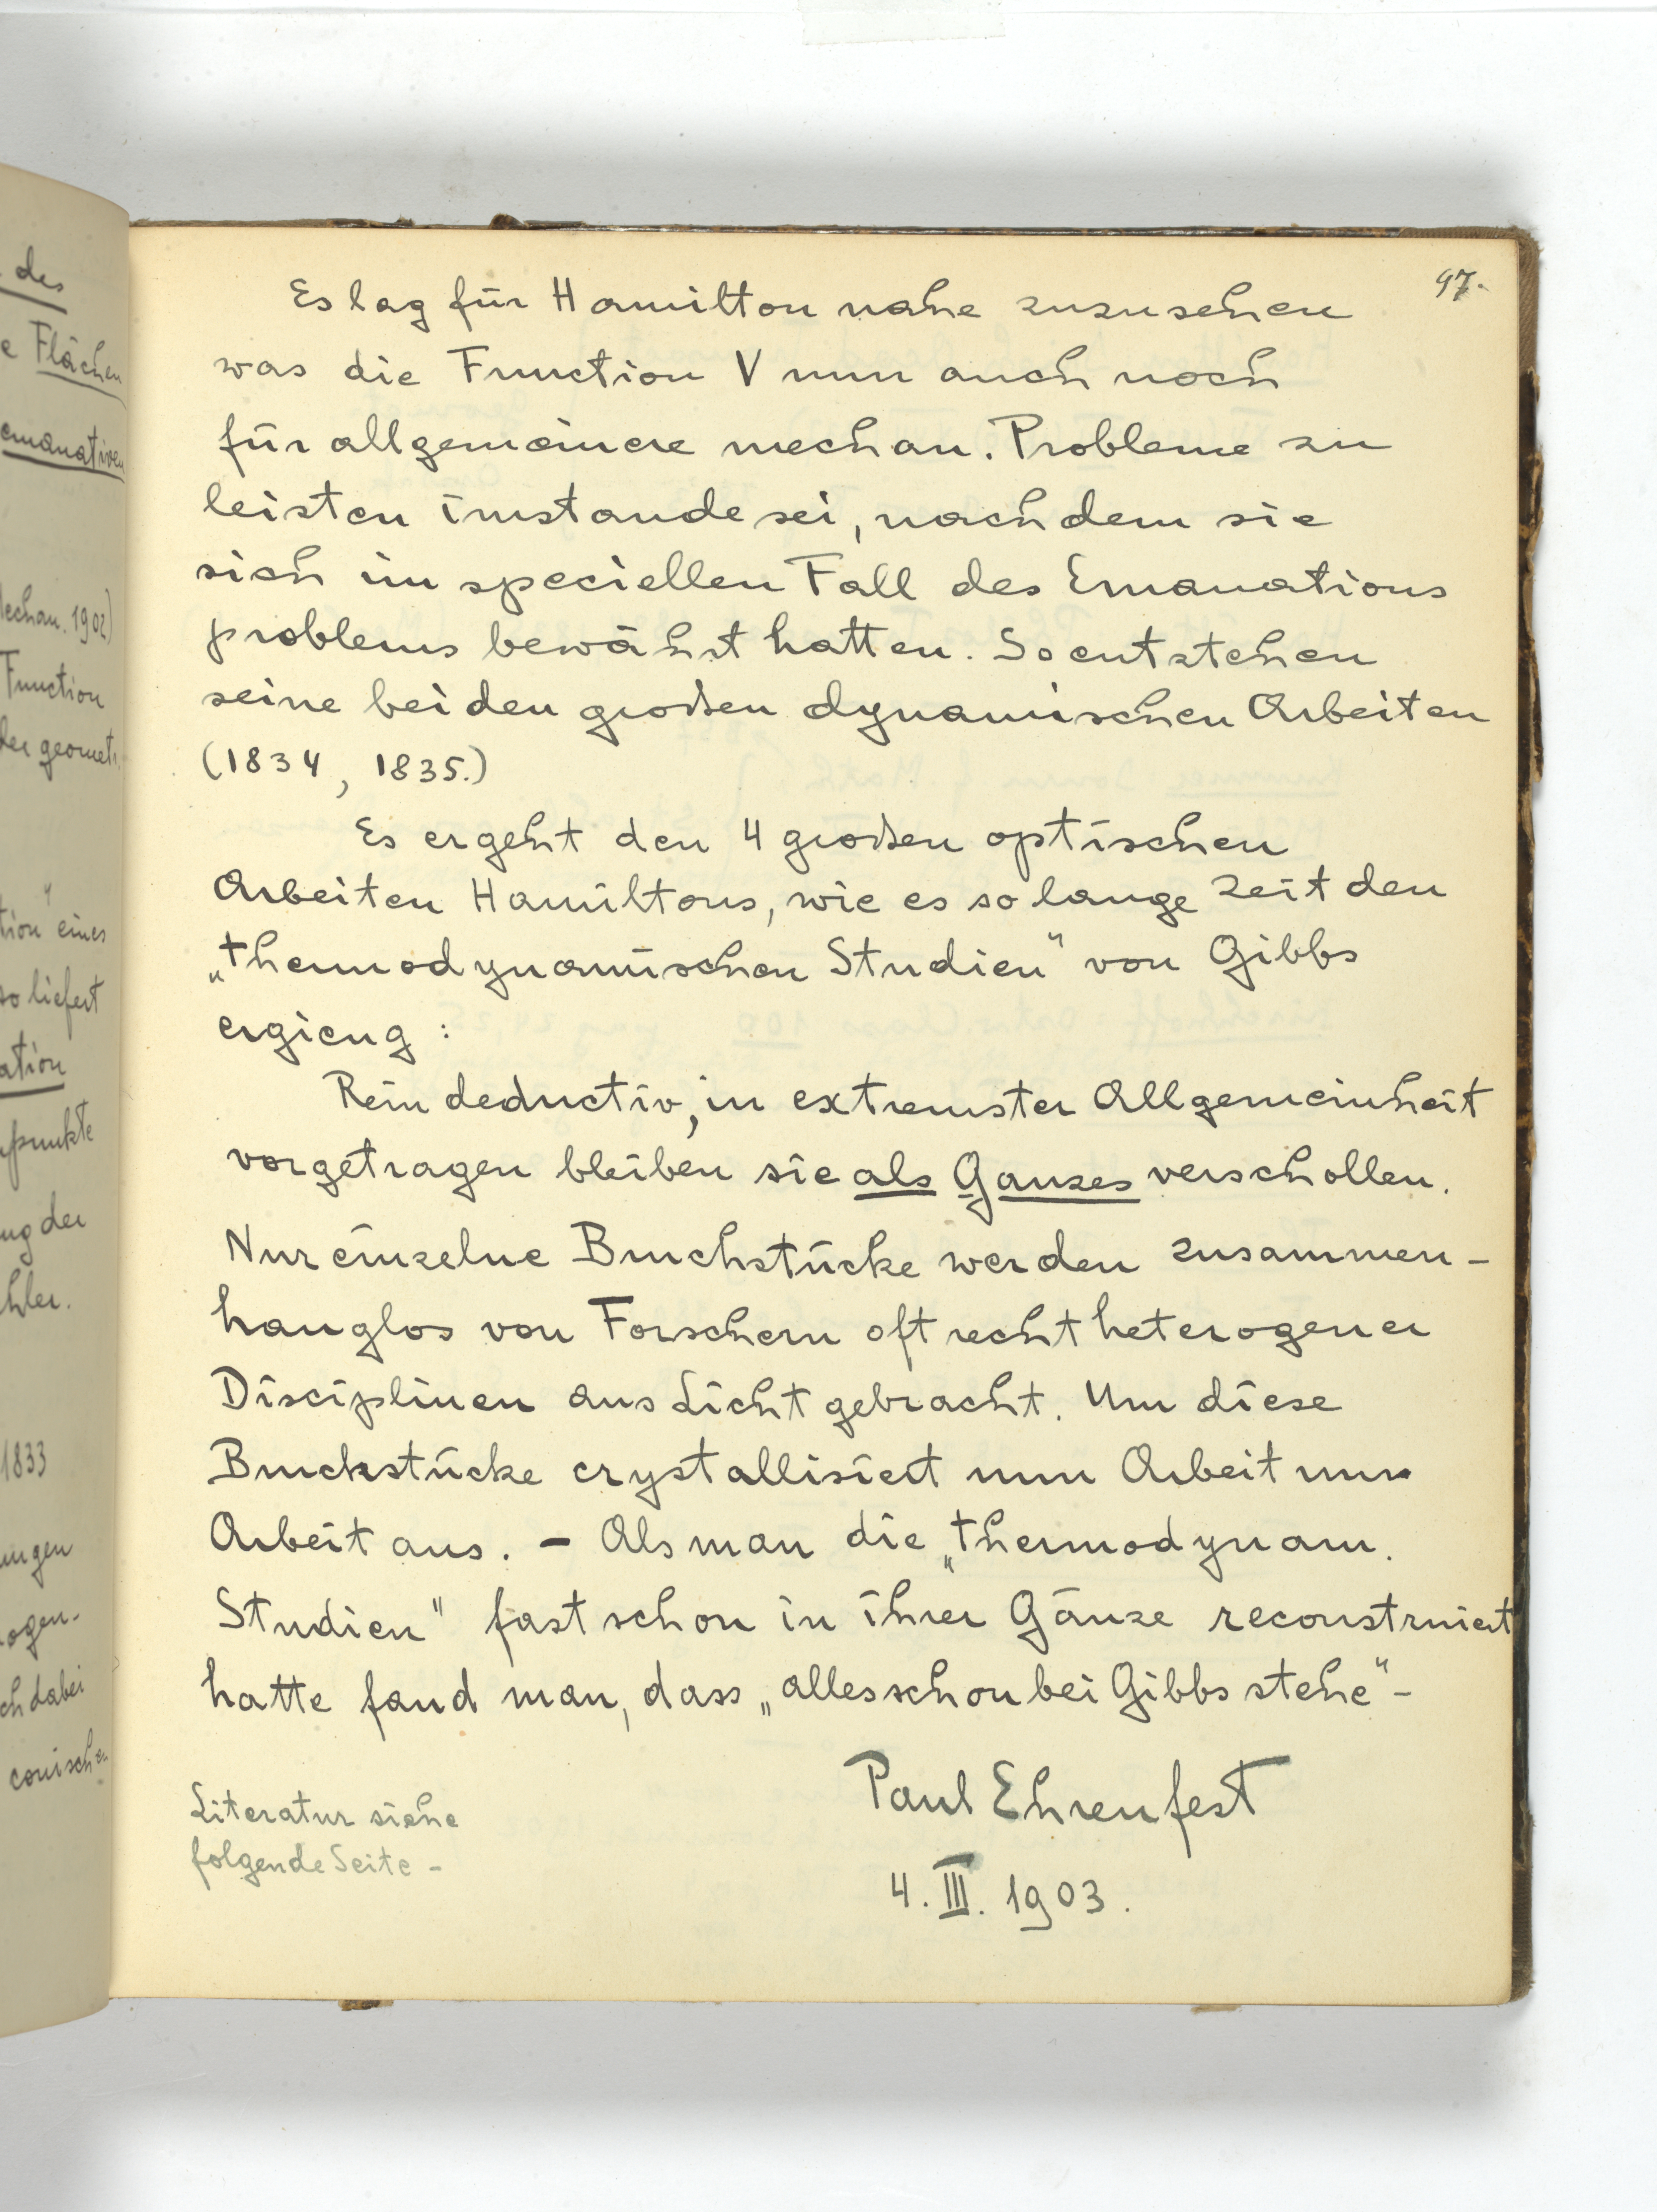 97.
Es lag für Hamilton nahe zuzusehen
was die Function V nun auch noch
für allgemeinere mechan. Probleme zu
leisten imstande sei, nachdem sie
sich im speciellen Fall des Emanations
problems bewährt hatten. So entstehen
seine beiden großen dynamischen Arbeiten
(1834, 1835.)
Es ergeht den 4 großen optischen
Arbeiten Hamiltons, wie es so lange Zeit den
„thermodynamischen Studien" von Gibbs
ergieng:
Rein deductiv, in extremster Allgemeinheit
vorgetragen bleiben sie als Ganzes verschollen.
Nur einzelne Bruchstücke werden zusammen-
hanglos von Forschern oft recht heterogener
Disciplinen ans Licht gebracht. Um diese
Bruchstücke crystallisiert nun Arbeit um
Arbeit aus. - Als man die „thermodynam.
Studien" fast schon in ihrer Gänze reconstruiert
hatte fand man, dass „alles schon bei Gibbs stehe" -
Paul Ehrenfest
4. III. 1903.
Literatur siehe
folgende Seite -
des
e Flächen
emanativen
Mechan. 1902)
Function
der geomet
tion" eines
so liefert
ation
punkte
ng der
hler.
1833
ungen
ogen-
ch dabei
conische